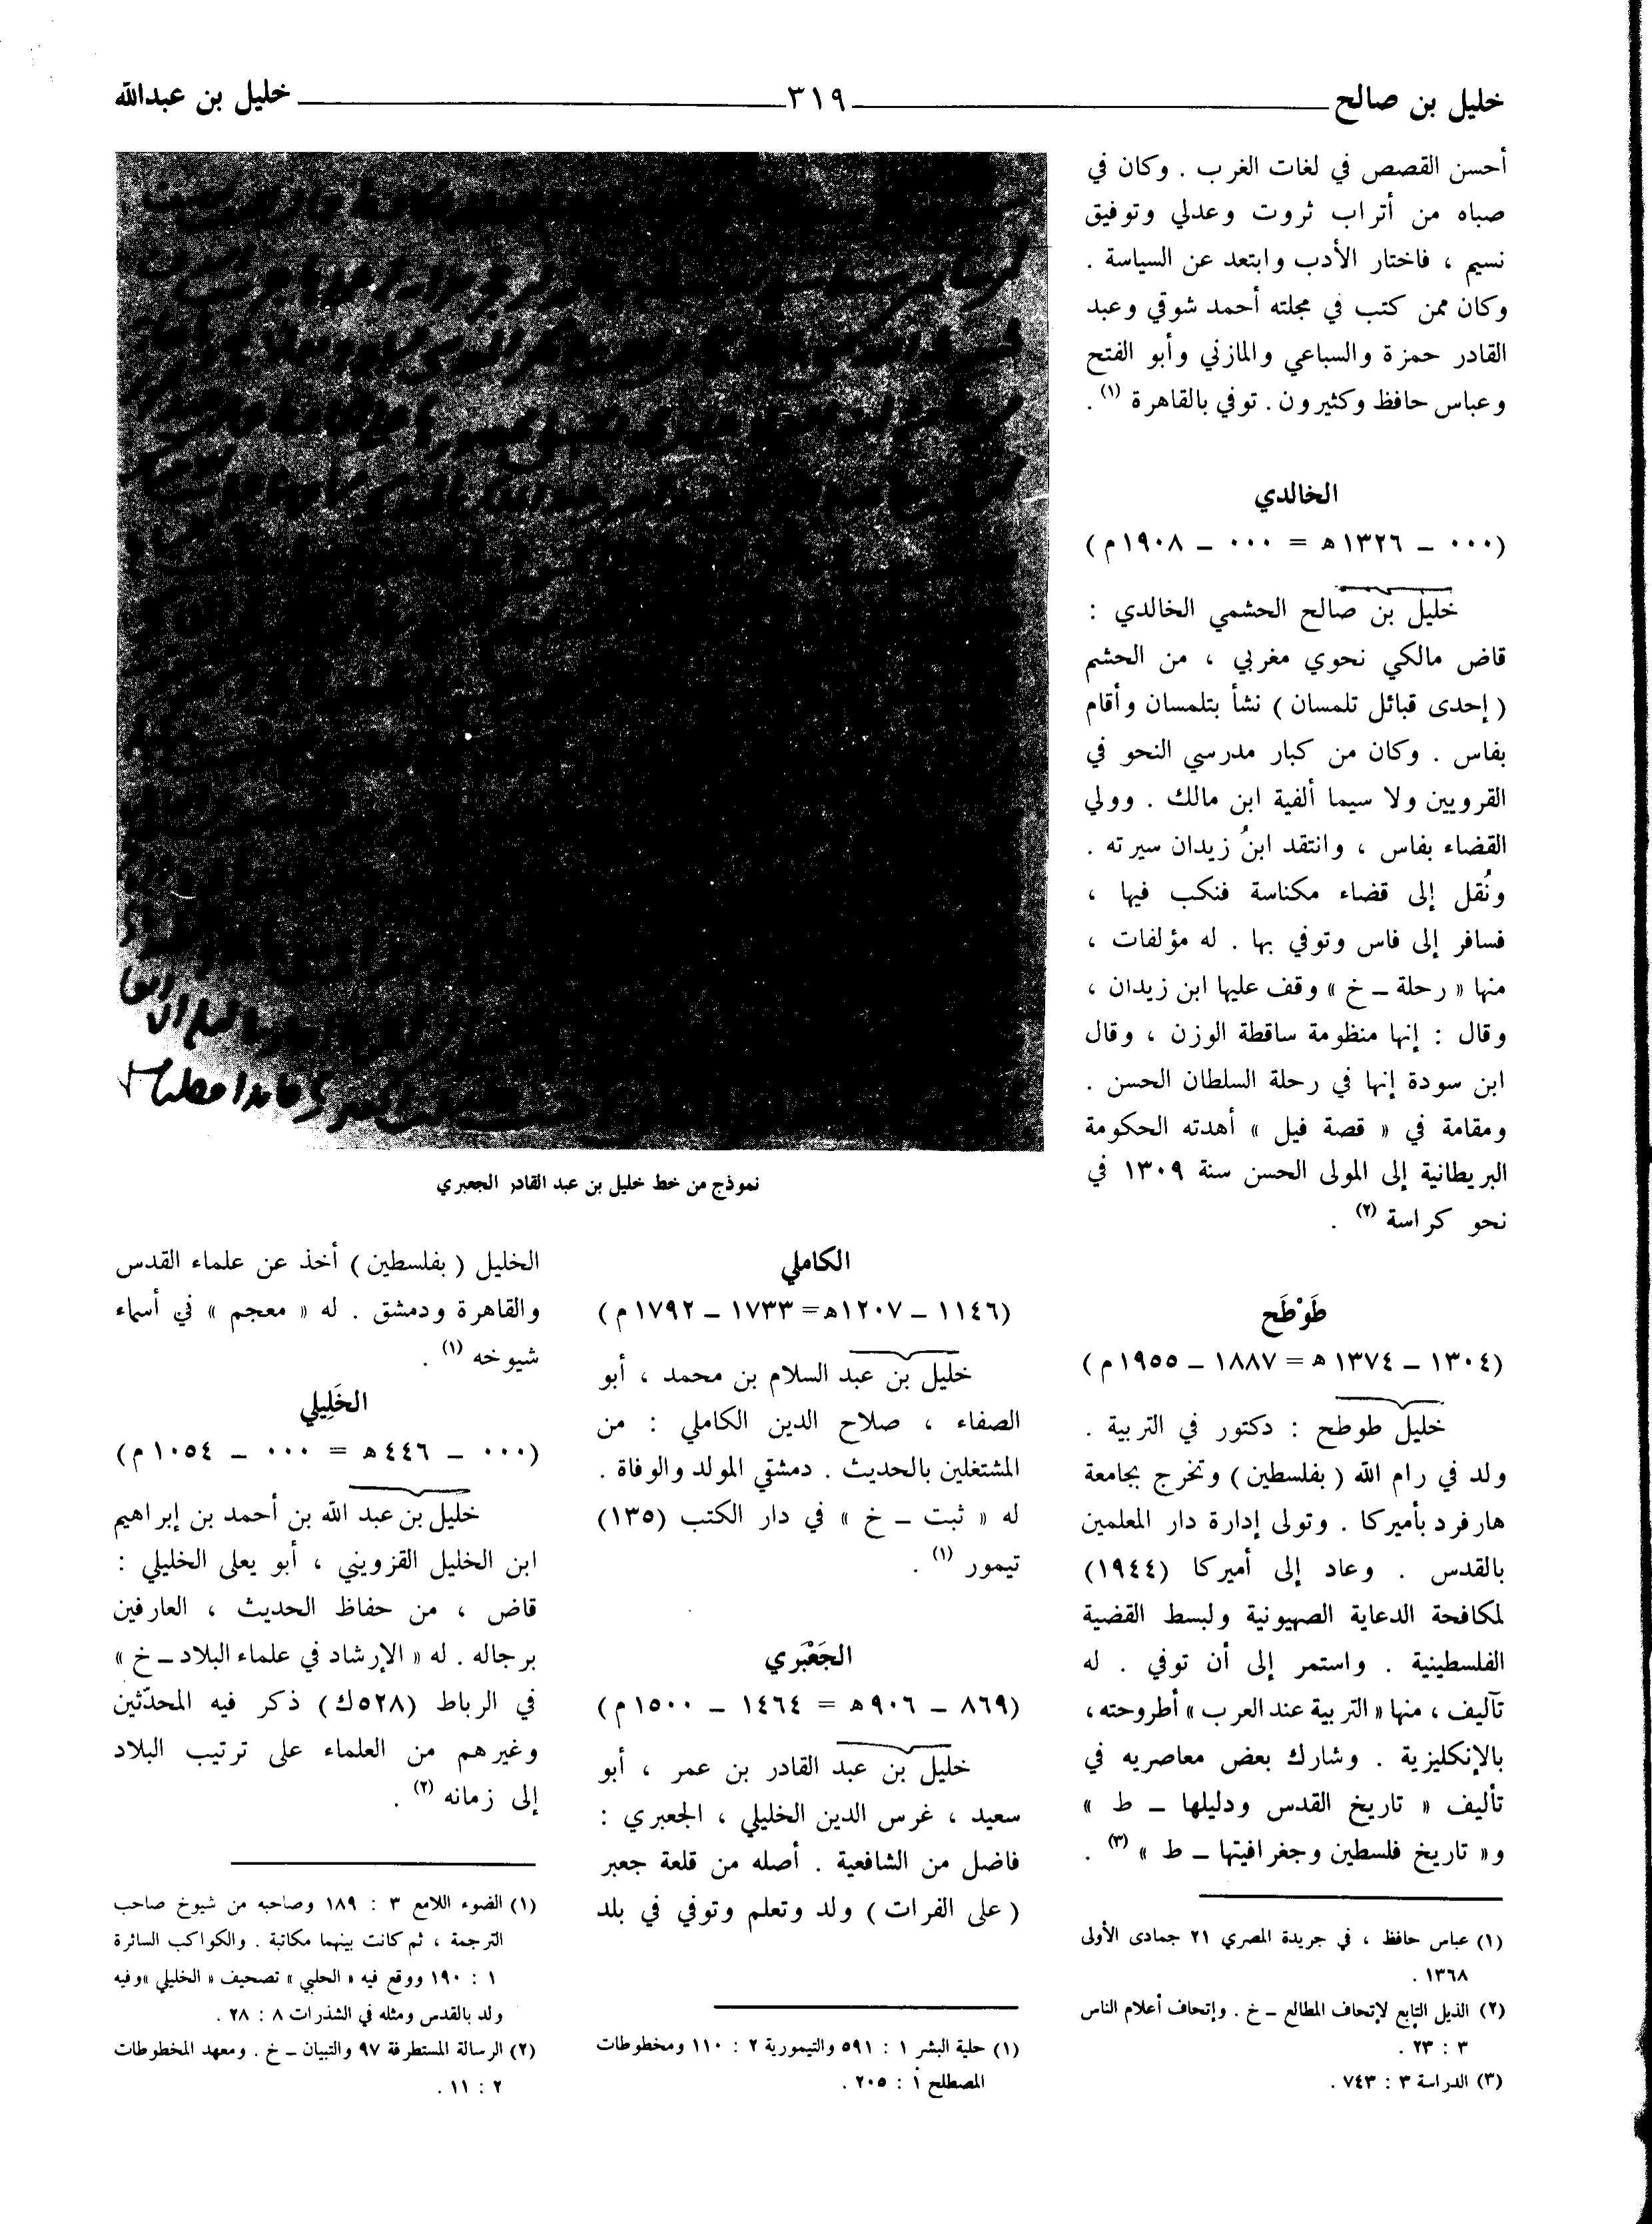 خليل بن صالح ٣١٩ خليل بن عبدالله
أحسن القصص في لغات الغرب . وكان في
صباه من أتراب ثروت وعدلي وتوفيق
نسيم ، فاختار الأدب وابتعد عن السياسة .
وكان ممن كتب في مجلته أحمد شوقي وعبد
القادر حمزة والسباعي والمازني وأبو الفتح
وعباس حافظ وكثيرون . توفي بالقاهرة (١) .
الخالدي
(٠٠٠ - ١٣٢٦هـ = ٠٠٠ - ١٩٠٨م)
خليل بن صالح الحشمي الخالدي :
قاض مالكي نحوي مغربي ، من الحشم
( إحدى قبائل تلمسان ) نشأ بتلمسان وأقام
بفاس . وكان من كبار مدرسي النحو في
القرويين ولا سيما ألفية ابن مالك . وولي
القضاء بفاس ، وانتقد ابنُ زيدان سيرته .
ونُقل إلى قضاء مكناسة فنكب فيها ،
فسافر إلى فاس وتوفي بها . له مؤلفات ،
منها « رحلة - خ » وقف عليها ابن زيدان ،
وقال : إنها منظومة ساقطة الوزن ، وقال
ابن سودة إنها في رحلة السلطان الحسن .
ومقامة في « قصة فيل » أهدته الحكومة
البريطانية إلى المولى الحسن سنة ١٣٠٩ في
نحو كراسة (٢) .
طَوْطَح
(١٣٠٤ - ١٣٧٤ هـ = ١٨٨٧ - ١٩٥٥م)
خليل طوطح : دكتور في التربية .
ولد في رام الله ( بفلسطين ) وتخرج بجامعة
هارفرد بأميركا . وتولى إدارة دار المعلمين
بالقدس . وعاد إلى أميركا (١٩٤٤)
لمكافحة الدعاية الصهيونية ولبسط القضية
الفلسطينية . واستمر إلى أن توفي . له
تآليف ، منها « التربية عند العرب » أطروحته ،
بالإنكليزية . وشارك بعض معاصريه في
تأليف « تاريخ القدس ودليلها - ط »
و« تاريخ فلسطين وجغرافيتها - ط » (٣) .
(١) عباس حافظ ، في جريدة المصري ٢١ جمادى الأولى
١٣٦٨ .
(٢) الذيل التابع لإتحاف المطالع - خ . وإتحاف أعلام الناس
٣ : ٢٣ .
(٣) الدراسة ٣ : ٧٤٣ .
نموذج من خط خليل بن عبد القادر الجعبري
الكاملي
(١١٤٦ - ١٢٠٧هـ = ١٧٣٣ - ١٧٩٢م)
خليل بن عبد السلام بن محمد ، أبو
الصفاء ، صلاح الدين الكاملي : من
المشتغلين بالحديث . دمشقي المولد والوفاة .
له « ثبت - خ » في دار الكتب (١٣٥)
تيمور (١) .
الجَعْبَري
(٨٦٩ - ٩٠٦هـ = ١٤٦٤ - ١٥٠٠م)
خليل بن عبد القادر بن عمر ، أبو
سعيد ، غرس الدين الخليلي ، الجعبري :
فاضل من الشافعية . أصله من قلعة جعبر
( على الفرات ) ولد وتعلم وتوفي في بلد
(١) حلية البشر ١ : ٥٩١ والتيمورية ٢ : ١١٠ ومخطوطات
المصطلح ١ : ٢٠٥ .
الخليل ( بفلسطين ) أخذ عن علماء القدس
والقاهرة ودمشق . له « معجم » في أسماء
شيوخه (١) .
الخَلِيلي
(٠٠٠ - ٤٤٦هـ = ٠٠٠ - ١٠٥٤م)
خليل بن عبد الله بن أحمد بن إبراهيم
ابن الخليل القزويني ، أبو يعلى الخليلي :
قاض ، من حفاظ الحديث ، العارفين
برجاله . له « الإرشاد في علماء البلاد - خ »
في الرباط (٥٢٨ك) ذكر فيه المحدّثين
وغيرهم من العلماء على ترتيب البلاد
إلى زمانه (٢) .
(١) الضوء اللامع ٣ : ١٨٩ وصاحبه من شيوخ صاحب
الترجمة ، ثم كانت بينهما مكاتبة . والكواكب السائرة
١ : ١٩٠ ووقع فيه « الحلبي » تصحيف « الخليلي » وفيه
ولد بالقدس ومثله في الشذرات ٨ : ٢٨ .
(٢) الرسالة المستطرفة ٩٧ والتبيان - خ . ومعهد المخطوطات
٢ : ١١ .